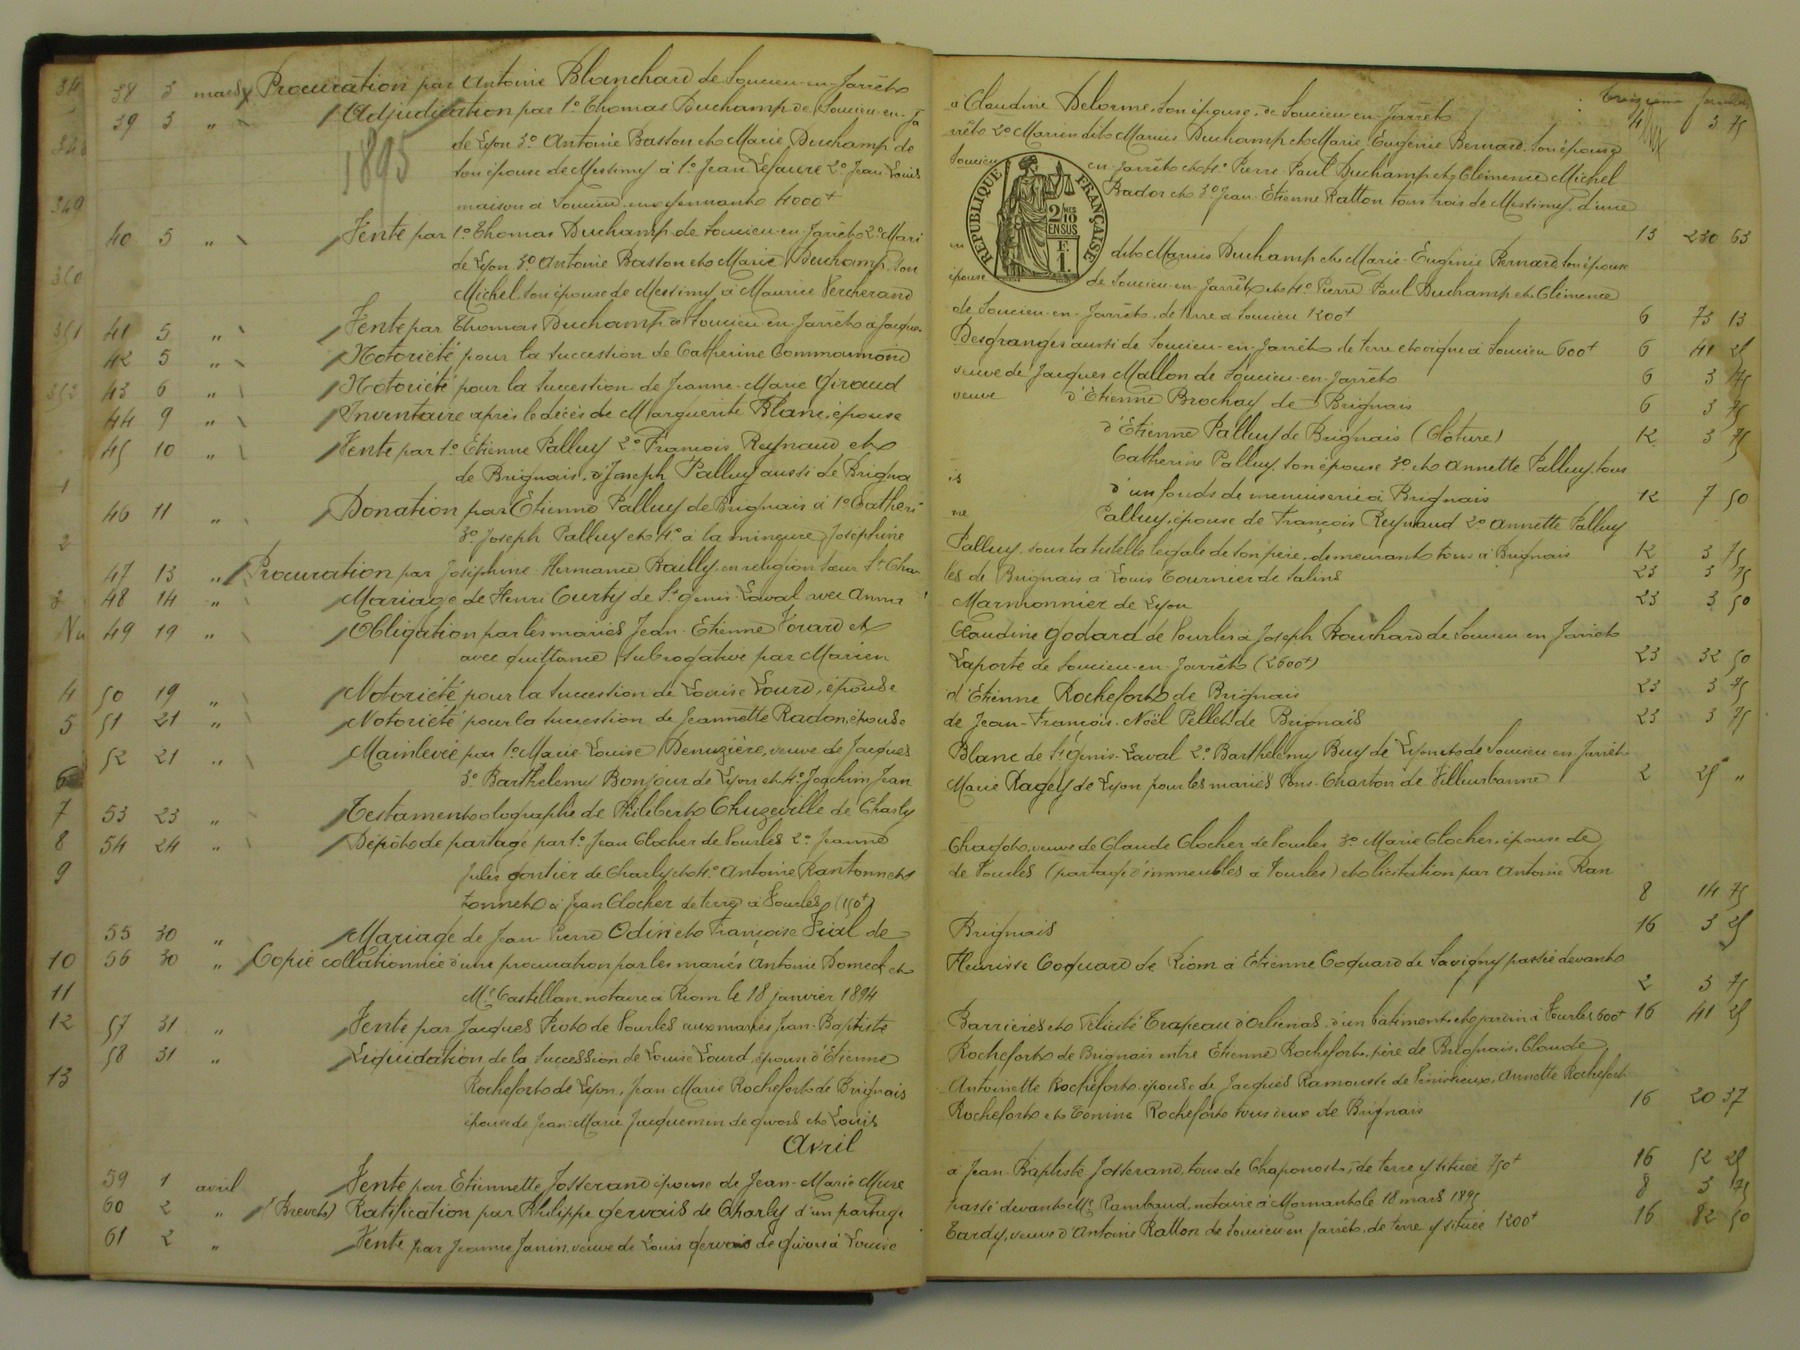 treizième feuillet
38 3 mars Procuration par Antoine Blanchard de Soucieu-en-Jarrêt à Claudine Delorme, son épouse, de Soucieu-en-Jarrêt 4 3 75
39 3 " Adjudication par 1º Thomas Duchamp de Soucieu-en-Ja rrêt 2º Marien dit Marius Duchamp et Marie Eugénie Bernard, son épouse
1895
de Lyon 3º Antoine Basson et Marie Duchamp de Soucieu en-Jarrêt et 4º Pierre Paul Duchamp et Clémence Michel
son épouse de Messimy à 1º Jean Lefaure 2º Jean Louis Bador et 3º Jean-Etienne Ratton tous trois de Messimy, d'une
maison à Soucieu, moyennant 4000f 13 230 63
RÉPUBLIQUE FRANÇAISE
2/10 EN SUS
F. 1.
40 5 " Vente par 1º Thomas Duchamp de Soucieu-en-Jarrêt 2º Mari en dit Marius Duchamp et Marie-Eugénie Bernard, son épouse
de Lyon 3º Antoine Basson et Marie Duchamp, son épouse de Soucieu-en-Jarrêt et 4º Pierre Paul Duchamp et Clémence
Michel son épouse de Messimy à Maurice Vercherand de Soucieu-en-Jarrêt, de terre à Soucieu 1200f 6 73 13
41 5 " Vente par Thomas Duchamp de Soucieu-en-Jarrêt à Jacques Desgranges aussi de Soucieu-en-Jarrêt de terre et vigne à Soucieu 600f 6 41 25
42 5 " Notoriété pour la succession de Catherine Commarmond veuve de Jacques Mallon de Soucieu-en-Jarrêt 6 3 75
43 6 " Notoriété pour la succession de Jeanne-Marie Giraud veuve d'Etienne Brochay de Brignais 6 3 75
44 9 " Inventaire après le décès de Marguerite Blanc, épouse d'Etienne Palluy de Brignais (Clôture) 12 3 75
45 10 " Vente par 1º Etienne Palluy 2º François Reynaud et Catherine Palluy, son épouse 3º et Annette Palluy, tous
de Brignais, à Joseph Palluy aussi de Brigna is d'un fonds de menuiserie à Brignais 12 7 50
46 11 " Donation par Etienne Palluy de Brignais à 1º Catheri ne Palluy, épouse de François Reynaud 2º Annette Palluy
3º Joseph Palluy et 4º à la mineure Joséphine Palluy, sous la tutelle légale de son père, demeurant tous à Brignais 12 3 75
47 13 " Procuration par Joséphine Hermance Bailly, en religion Sœur St Char les de Brignais à Louis Tournier de Salins 23 3 75
48 14 " Mariage de Henri Curty de St Genis-Laval avec Anna Marmonnier de Lyon 23 3 50
49 19 " Obligation par les mariés Jean-Etienne Vorard et Claudine Godard de Vourles à Joseph Bouchard de Soucieu en Jarrêt
avec quittance subrogative par Marien Laporte de Soucieu-en-Jarrêt (2600f) 23 32 50
50 19 " Notoriété pour la succession de Louise Lourd, épouse d'Etienne Rochefort de Brignais 23 3 75
51 21 " Notoriété pour la succession de Jeannette Radon, épouse de Jean-François-Noël Pellet de Brignais 23 3 75
52 21 " Mainlevée par 1º Marie Louise Denuzière, veuve de Jacques Blanc de St Genis-Laval 2º Barthélemy Buy de Lyon et de Soucieu-en-Jarrêt
3º Barthélemy Bonjour de Lyon et 4º Joachim Jean Marie Ragey de Lyon pour les mariés Pons-Charton de Villeurbanne 2 25 "
53 23 " Testament olographe de Philibert Chuzeville de Charly
54 24 " Dépôt de partage par 1º Jean Clocher de Vourles 2º Jeanne Chagot, veuve de Claude Clocher de Vourles 3º Marie Clocher, épouse de
Jules Gontier de Charly et 4º Antoine Rantonnet de Vourles (partage d'immeubles à Vourles) et licitation par Antoine Ran
tonnet à Jean Clocher de terre à Vourles (150f) 8 14 75
55 30 " Mariage de Jean-Pierre Odin et Françoise Vial de Brignais 16 3 25
56 30 " Copie collationnée d'une procuration par les mariés Antoine Domeck et Fleurisse Coquard de Riom à Etienne Coquard de Savigny passée devant
Me Castellan, notaire à Riom le 18 janvier 1894 2 3 75
57 31 " Vente par Jacques Piot de Vourles aux mariés Jean-Baptiste Barrières et Félicité Trapeau d'Orliénas, d'un bâtiment et jardin à Vourles 600f 16 41 25
58 31 " Liquidation de la succession de Louise Lourd, épouse d'Etienne Rochefort de Brignais entre Etienne Rochefort, père de Brignais, Claude
Rochefort de Lyon, Jean-Marie Rochefort de Brignais Antoinette Rochefort épouse de Jacques Ramousse de Vénissieux, Annette Rochefort
épouse de Jean-Marie Jacquemin de Givors et Louis Rochefort et Tonine Rochefort tous deux de Brignais 16 20 37
Avril
59 1 avril Vente par Etiennette Josserand épouse de Jean-Marie Mure à Jean-Baptiste Josserand, tous de Chaponost, de terre y située 750f 16 52 25
60 2 " (Brevet) Ratification par Philippe Gervais de Charly d'un partage passé devant Me Rambaud, notaire à Mornant le 18 mars 1895 8 3 75
61 2 " Vente par Jeanne Janin, veuve de Louis Gervais de Givors à Louise Tardy, veuve d'Antoine Ratton de Soucieu en Jarrêt, de terre y située 1200f 16 82 50